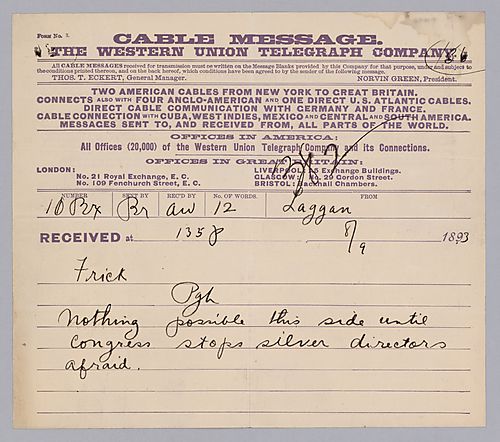 FORM No. 1.
CABLE MESSAGE.
THE WESTERN UNION TELEGRAPH COMPANY.
All CABLE MESSAGES received for transmission must be written on the Message Blanks provided by this Company for that purpose, under and subject to
the conditions printed thereon, and on the back hereof, which conditions have been agreed to by the sender of the following message.
THOS. T. ECKERT, General Manager. NORVIN GREEN, President.
TWO AMERICAN CABLES FROM NEW YORK TO GREAT BRITAIN.
CONNECTS ALSO WITH FOUR ANGLO-AMERICAN AND ONE DIRECT U. S. ATLANTIC CABLES.
DIRECT CABLE COMMUNICATION WITH GERMANY AND FRANCE.
CABLE CONNECTION WITH CUBA, WEST INDIES, MEXICO AND CENTRAL AND SOUTH AMERICA.
MESSAGES SENT TO, AND RECEIVED FROM, ALL PARTS OF THE WORLD.
OFFICES IN AMERICA:
All Offices (20,000) of the Western Union Telegraph Company and its Connections.
OFFICES IN GREAT BRITAIN:
LONDON: LIVERPOOL: Exchange Buildings.
No. 21 Royal Exchange, E. C. GLASGOW: No. 29 Gordon Street.
No. 109 Fenchurch Street, E. C. BRISTOL: Backhall Chambers.
NUMBER SENT BY REC'D BY No. OF WORDS. FROM
10 Bx Br aw 12 Laggan
RECEIVED at 1358 8/9 1893
Frick
Pgh
Nothing possible this side until
Congress stops silver directors
afraid.